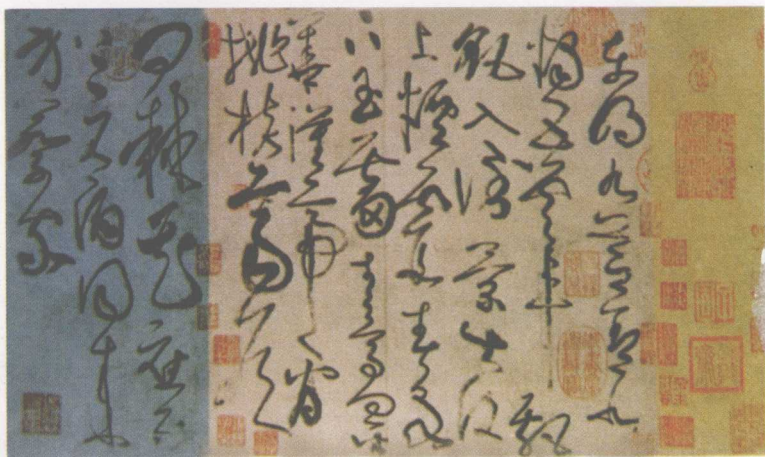 東明九芝蓋北
燭五雲車飄
飖入倒景出没
上煙霞春泉
下玉霤青鳥向金
華漢帝看
桃核齊侯
問棘花應逐
上元酒同來
訪蔡家